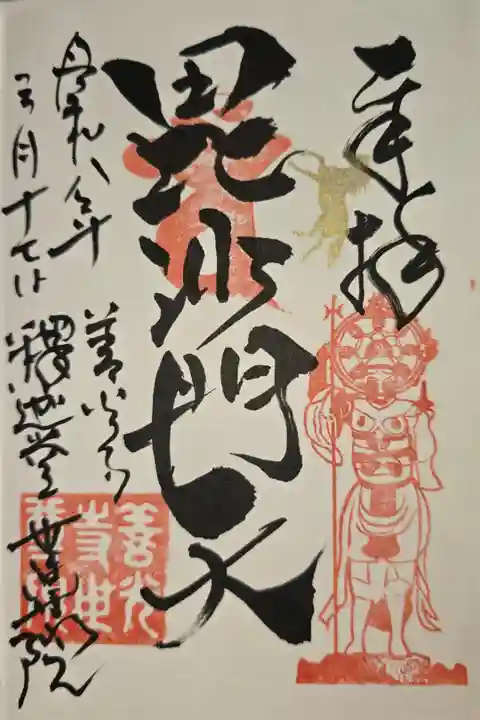 奉拝
毘沙門天
善光寺
釋迦堂 世尊院
令和八年
三月十七日
善光
寺世
尊院